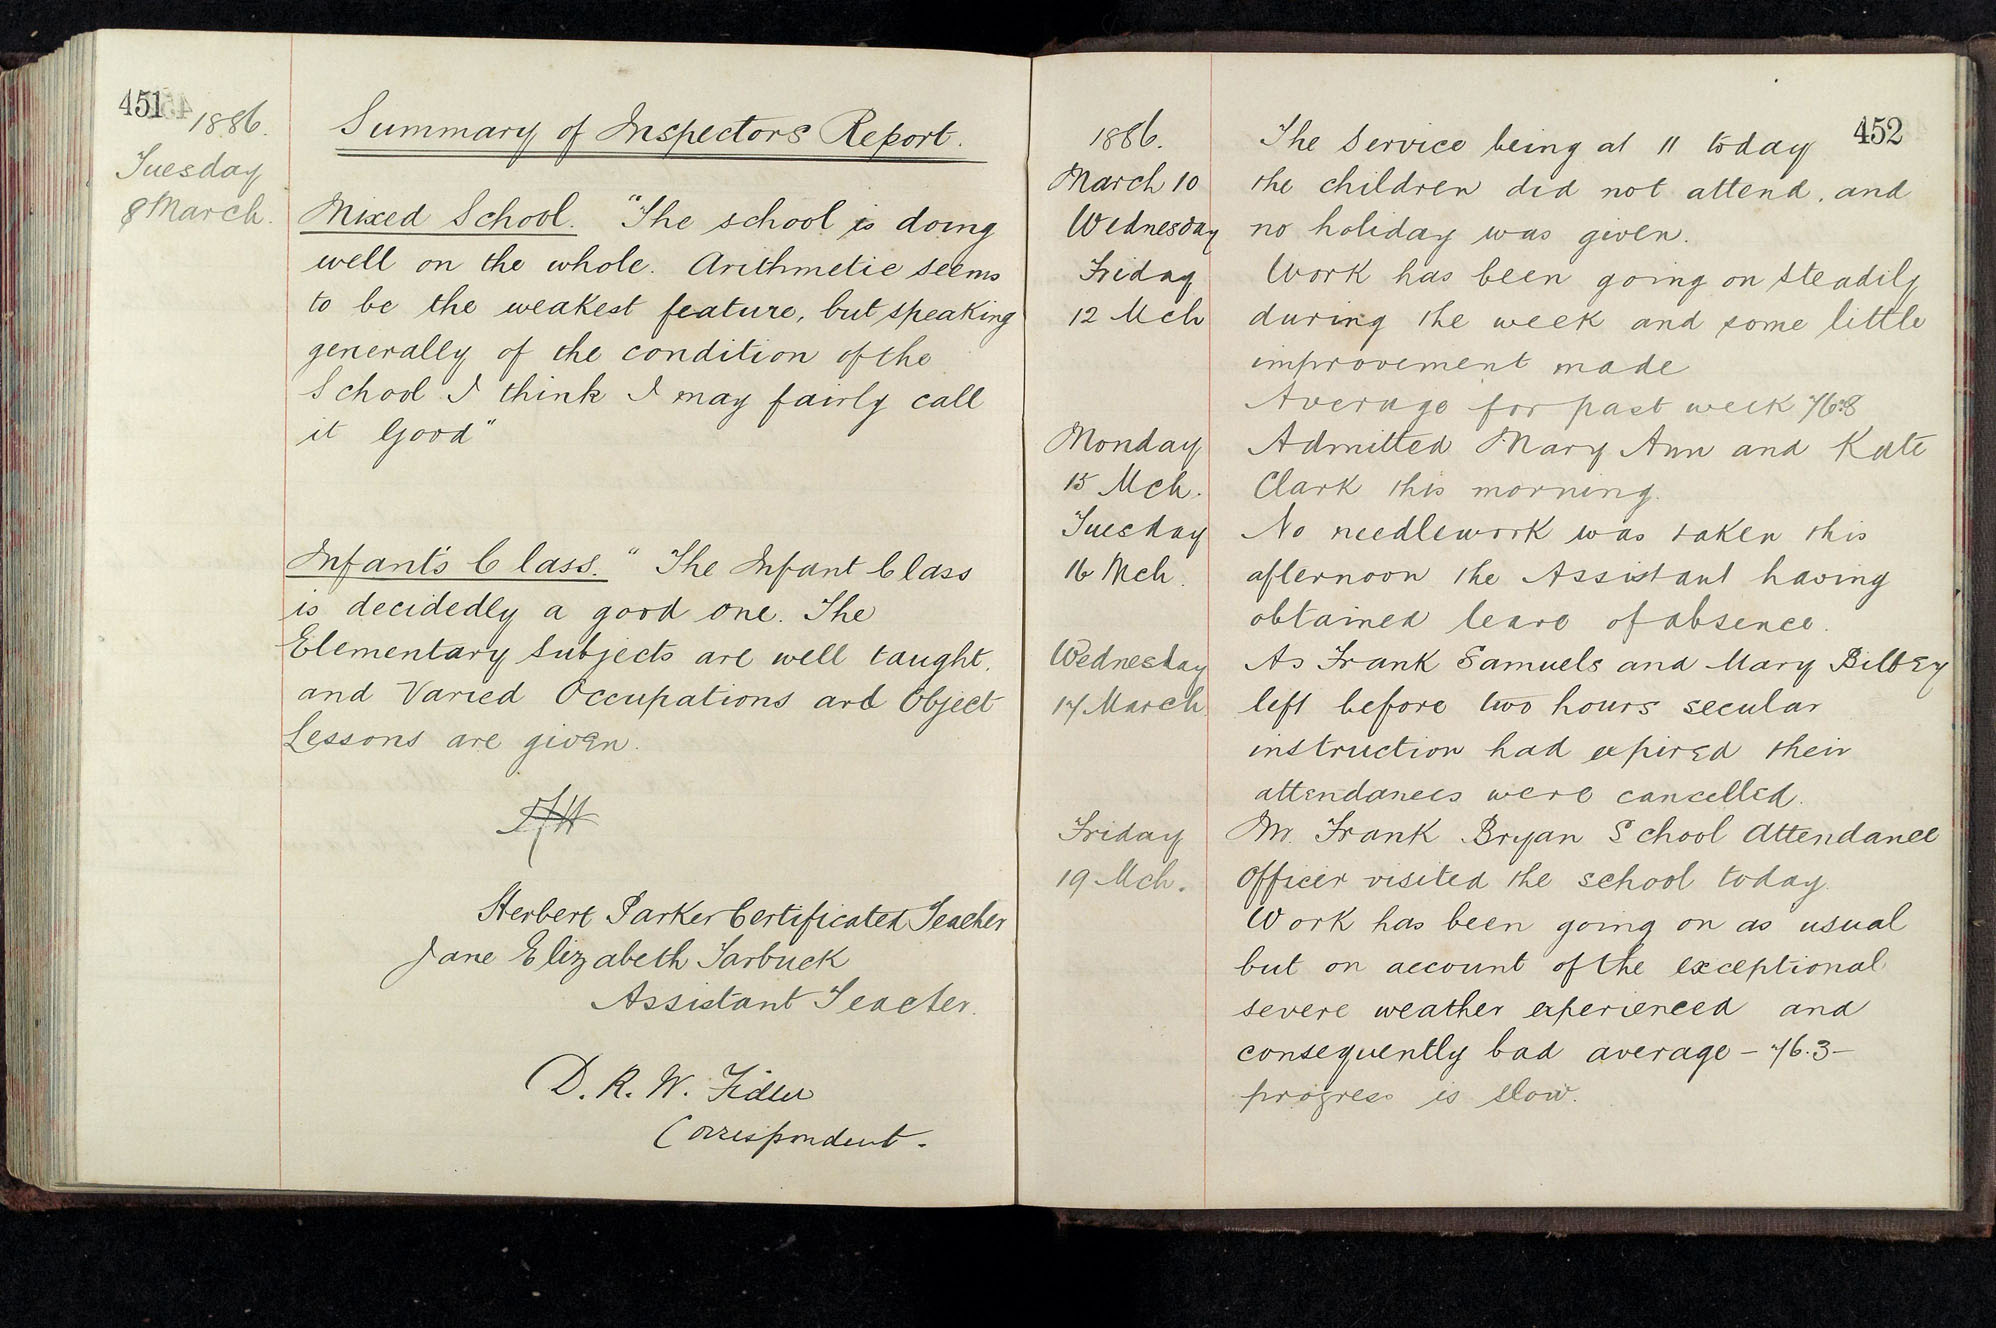 451
1886.
Tuesday
8 March.
Summary of Inspectors Report.
Mixed School. "The school is doing
well on the whole. Arithmetic seems
to be the weakest feature, but speaking
generally of the condition of the
School I think I may fairly call
it Good"
Infant's Class. "The Infant Class
is decidedly a good one. The
Elementary Subjects are well taught.
and Varied Occupations and Object
Lessons are given.
Herbert Parker Certificated Teacher
Jane Elizabeth Tarbuck
Assistant Teacher.
D. R. W. Fidler
Correspondent.
452
1886. The Service being at 11 today
March 10 the children did not attend, and
Wednesday no holiday was given.
Friday Work has been going on steadily
12 Mch during the week and some little
improvement made
Average for past week 76.8
Monday Admitted Mary Ann and Kate
15 Mch. Clark this morning.
Tuesday No needlework was taken this
16 Mch. afternoon the Assistant having
obtained leave of absence.
Wednesday As Frank Samuels and Mary Bilbey
17 March left before two hours secular
instruction had expired their
attendances were cancelled.
Friday Mr. Frank Bryan School Attendance
19 Mch. Officer visited the school today.
Work has been going on as usual
but on account of the exceptional
severe weather experienced and
consequently bad average - 76.3 -
progress is slow.